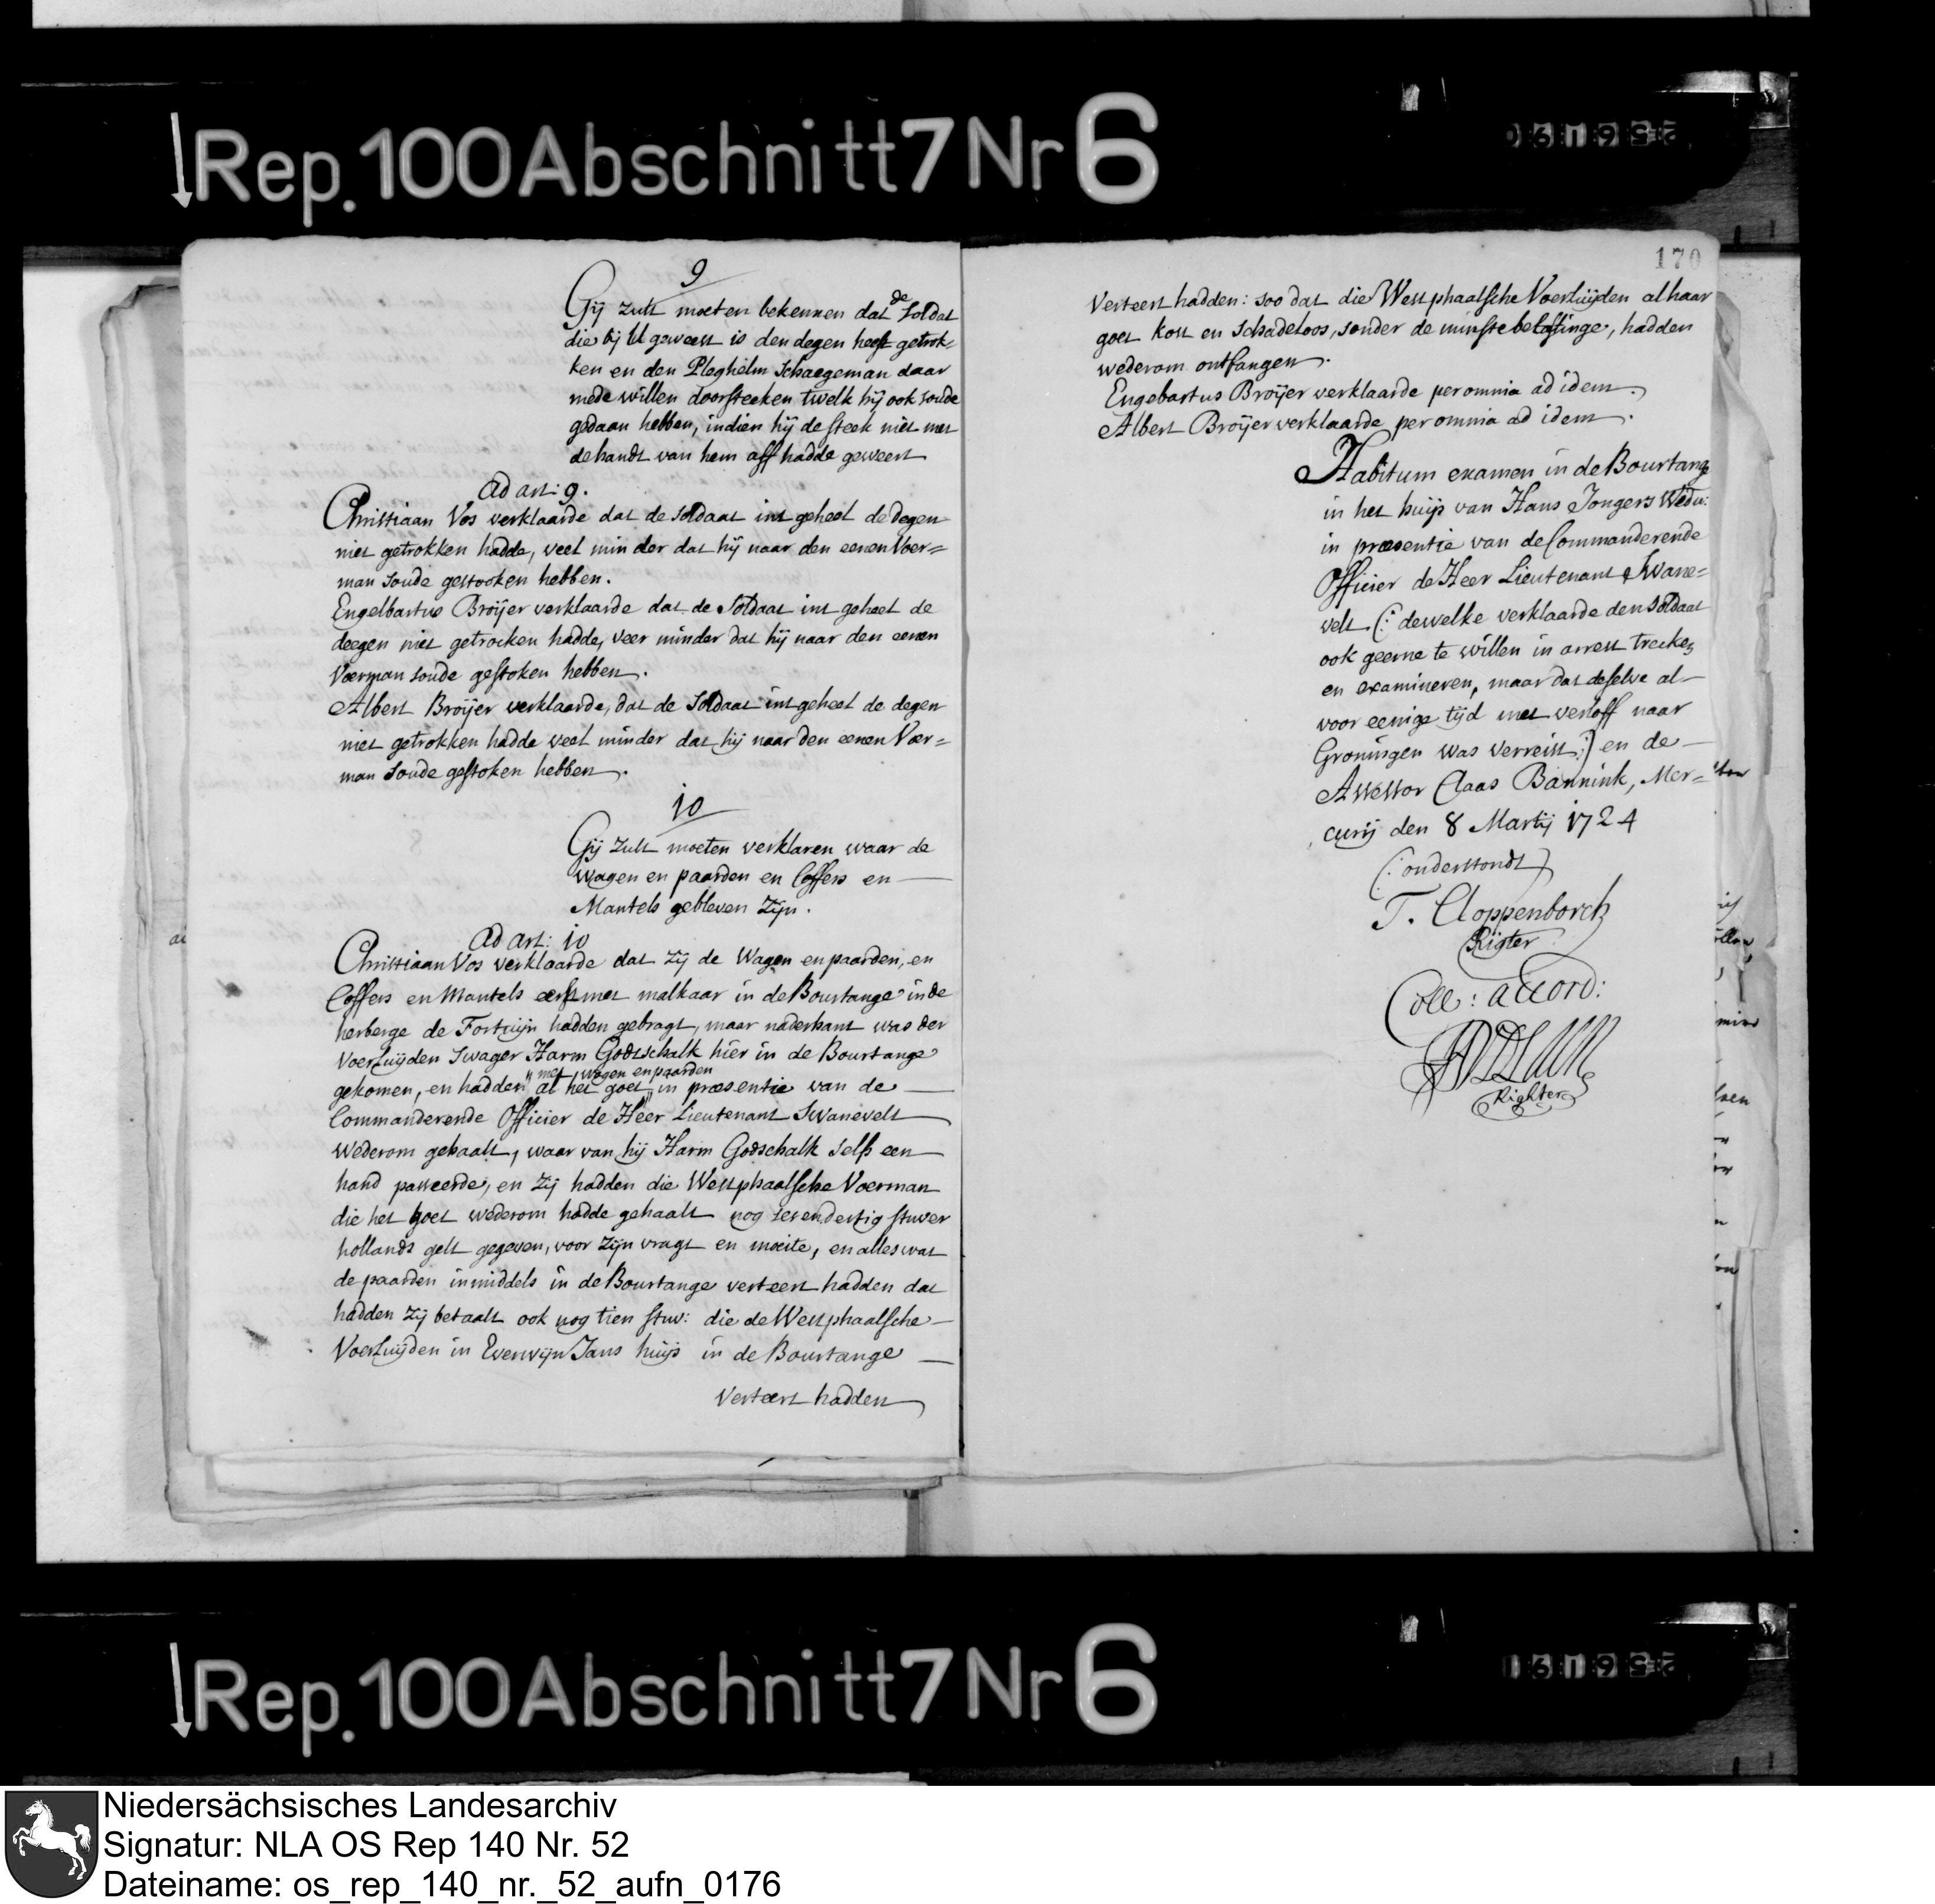 Rep. 100 Abschnitt 7 Nr 6
9
Gij zult moeten bekennen dat de Soldat
die bij U geweest is den degen heeft getrok-
ken en den Pleghelm Schaegeman daar
mede willen doorsteeken twelk hij ook soude
gedaan hebben, indien hij de steek niet met
de handt van hem aff hadde geweert
Ad art: 9.
Christiaan Vos verklaarde dat de soldaat int geheel de degen
niet getrokken hadde, veel min der dat hij naar den eenen Voer=
man soude gestooken hebben.
Engelbartus Broijer verklaarde dat de Soldaat int geheel de
deegen niet getrocken hadde, veer minder dat hij naar den eenen
Voerman soude gestoken hebben.
Albert Broijer verklaarde, dat de Soldaat int geheel de degen
niet getrokken hadde veel minder dat hij naar den eenen Voer=
man soude gestoken hebben.
10
Gij zult moeten verklaren waar de
Wagen en paarden en Coffers en
Mantels gebleven zijn.
Ad art: 10
Christiaan Vos verklaarde dat zij de Wagen en paarden, en
Coffers en Mantels eerst met malkaar in de Bourtange in de
herberge de Fortuijn hadden gebragt, maar naderhant was der
Voerluijden Swager Harm Godtschalk hier in de Bourtange
met wagen en paarden
gekomen, en hadden al het goet in præsentie van de
Commanderende Officier de Heer Lieutenant Swanevelt
Wederom gehaalt, waar van hij Harm Godschalk selfs een
hand passeerde, en zij hadden die Westphaalsche Voerman
die het goet wederom hadde gehaalt nog sevendertig stuver
hollands gelt gegeven, voor zijn vragt en moeite, en alles wat
de paarden inmiddels in de Bourtange verteert hadden dat
hadden zij betaalt ook nog tien stuv: die de Westphaalsche
Voerluijden in Everwijn Jans huijs in de Bourtange
Verteert hadden
170
Verteert hadden: soo dat die Westphaalsche Voerluijden al haar
goet kost en schadeloos, sonder de minste belastinge, hadden
wederom ontfangen.
Engebartus Broijer verklaarde per omnia ad idem.
Albert Broijer verklaarde per omnia ad idem.
Habitum examen in de Bourtange
in het huijs van Hans Jongers Wedu:
in præsentie van de Commanderende
Officier de Heer Lieutenant Swane=
velt (: dewelke verklaarde den soldaat
ook geerne te willen in arrest trecken
en examineren, maar dat deselve al
voor eenige tijd met verloff naar
Groningen was verreist :) en de
Assessor Claas Bannink, Mer=
curij den 8 Martij 1724
(: onderstondt)
T. Cloppenborch
Rigter
Coll: accord:
Righter
Rep. 100 Abschnitt 7 Nr 6
Niedersächsisches Landesarchiv
Signatur: NLA OS Rep 140 Nr. 52
Dateiname: os_rep_140_nr._52_aufn_0176